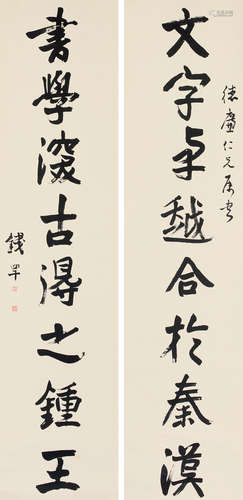 德
仁兄屬書
文字卓越合於秦漢
書學深古得之鍾王
錢罕